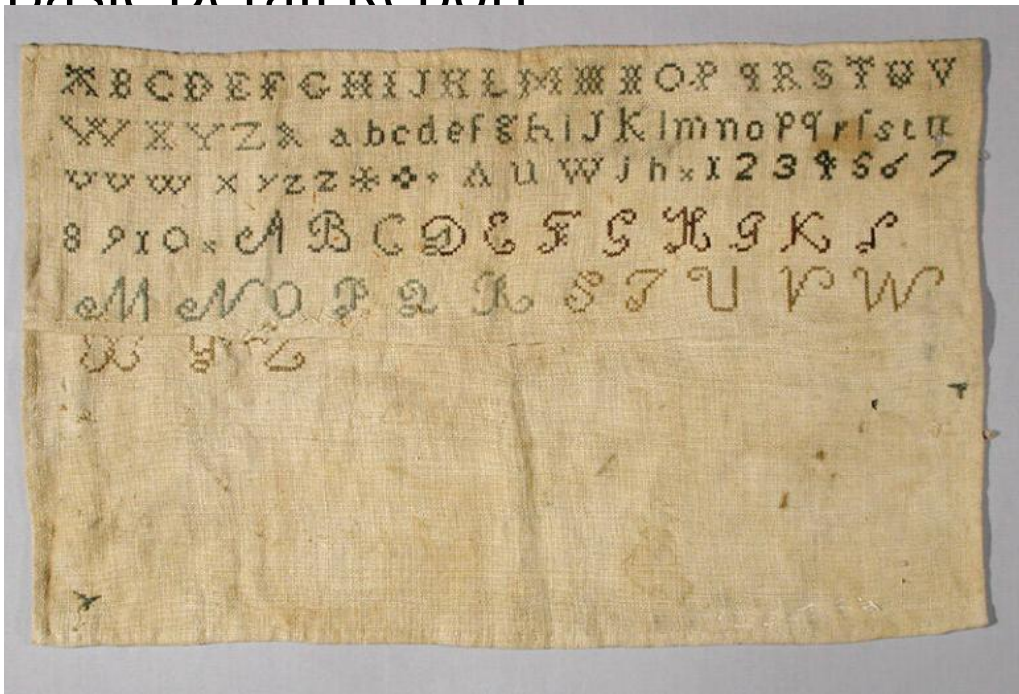 Basic Detail Report
A B C D E F G H I J K L M N O P q R S T U V
W X Y Z & a b c d e f g h i J K l m n o p q r ſ s t u
v v w x y z z A U W j h x 1 2 3 4 5 6 7
8 9 1 0 x A B C D E F G H G K L
M N O P Q R S T U V W
X Y Z